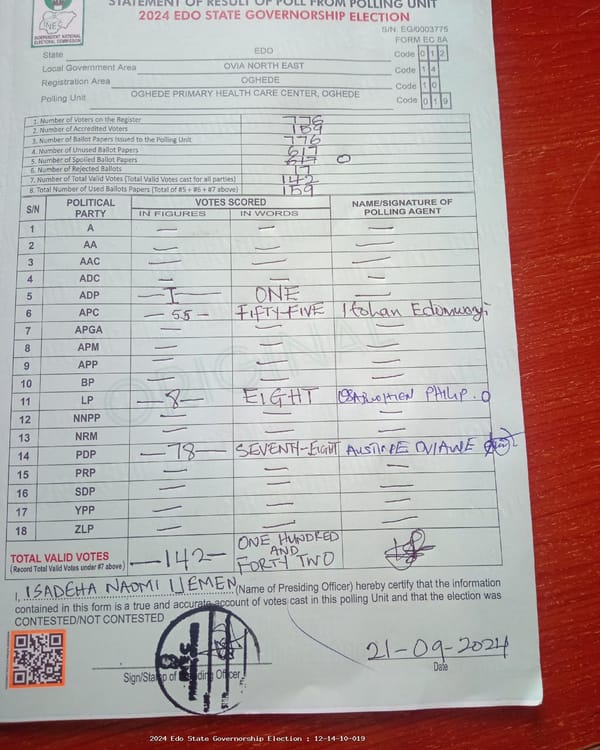 STATEMENT OF RESULT OF POLL FROM POLLING UNIT
2024 EDO STATE GOVERNORSHIP ELECTION
S/N: EG/0003775
FORM EC 8A
INEC
INDEPENDENT NATIONAL ELECTORAL COMMISSION
State EDO Code 0 1 2
Local Government Area OVIA NORTH EAST Code 1 4
Registration Area OGHEDE Code 1 0
Polling Unit OGHEDE PRIMARY HEALTH CARE CENTER, OGHEDE Code 0 1 9
1. Number of Voters on the Register 776
2. Number of Accredited Voters 159
3. Number of Ballot Papers Issued to the Polling Unit 776
4. Number of Unused Ballot Papers 617
5. Number of Spoiled Ballot Papers 617 0
6. Number of Rejected Ballots 17
7. Number of Total Valid Votes (Total Valid Votes cast for all parties) 142
8. Total Number of Used Ballots Papers (Total of #5 + #6 + #7 above) 159
S/N POLITICAL PARTY VOTES SCORED NAME/SIGNATURE OF POLLING AGENT
IN FIGURES IN WORDS
1 A — — —
2 AA — — —
3 AAC — — —
4 ADC — — —
5 ADP —I— ONE —
6 APC —55— FIFTY-FIVE Itohan Edomwagi
7 APGA — — —
8 APM — — —
9 APP — — —
10 BP — — —
11 LP —8— EIGHT PHILIP .O
12 NNPP — — —
13 NRM — — —
14 PDP —78— SEVENTY-EIGHT AUSTINE OVIAWE
15 PRP — — —
16 SDP — — —
17 YPP — — —
18 ZLP — — —
TOTAL VALID VOTES —142— ONE HUNDRED AND FORTY TWO
(Record Total Valid Votes under #7 above)
I, ISADEHA NAOMI IJEMEN (Name of Presiding Officer) hereby certify that the information
contained in this form is a true and accurate account of votes cast in this polling Unit and that the election was
CONTESTED/NOT CONTESTED
21-09-2024
Sign/Stamp of Presiding Officer Date
ORIGINAL
2024 Edo State Governorship Election : 12-14-10-019